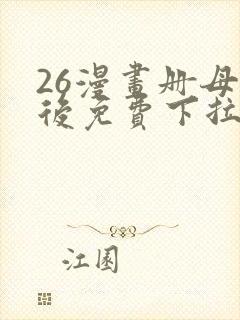 26漫畫册母
後免費下拉
江園